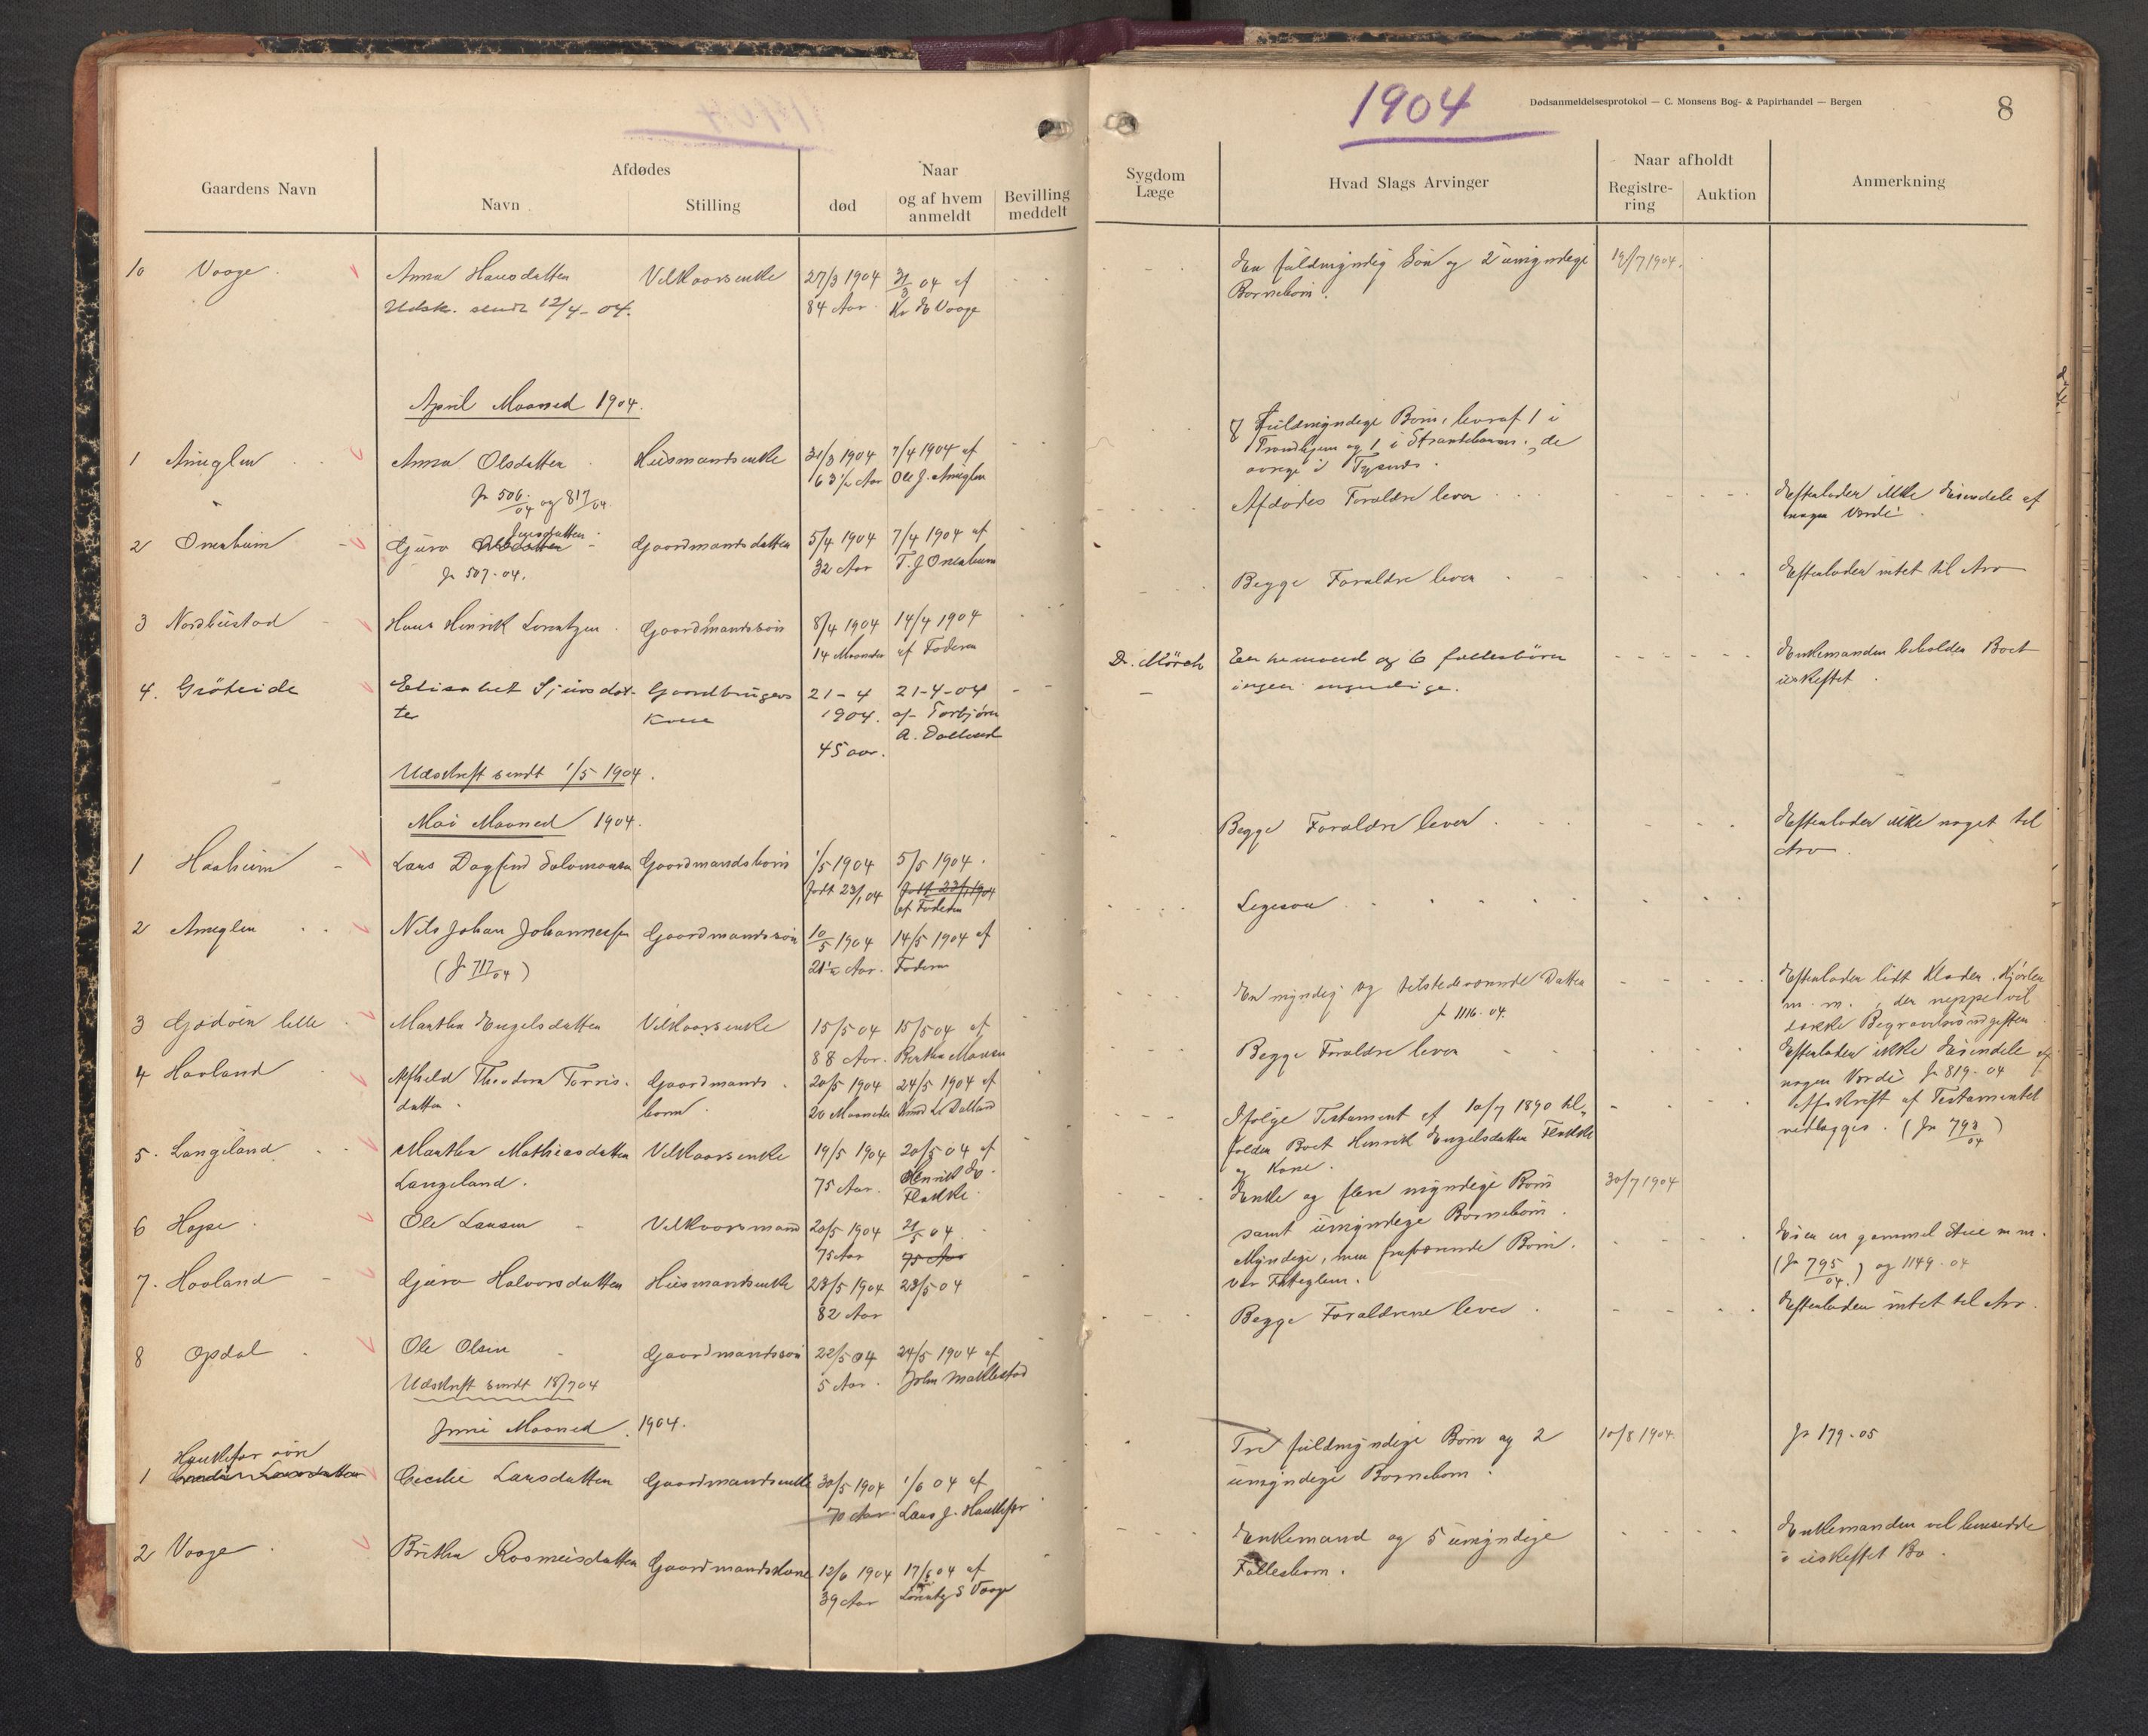 1904
Dødsanmeldelsesprotokol — C. Monsens Bog- & Papirhandel — Bergen
8
Gaardens Navn
Afdødes
Navn
Stilling
Naar
død
og af hvem
anmeldt
Bevilling
meddelt
Sygdom
Læge
Hvad Slags Arvinger
Naar afholdt
Registre-
ring
Auktion
Anmerkning
10 Vaage Anna Hansdatter Vilkaarsenke 27/3 1904 31/3 04 af En fuldmyndig Søn og 2 umyndige 18/7 1904.
Udskr. sendt 12/4 - 04. 84 Aar Kr E Vaage Børnebørn.
April Maaned 1904.
8 fuldmyndige Børn, hvoraf 1 i
Trondhjem og 1 i Strandebarm, de
øvrige i Tysnes.
1 Ameglen Anna Olsdatter Husmandsenke 31/3 1904 7/4 1904 af
63 1/2 Aar Ole J. Ameglen
Jr 506/04 og 817/04.
Afdødes Forældre lever Efterlader ikke Eiendele af
nogen Værdi.
2 Onarheim Gjøro Olsdatter Jensdatter Gaardmandsdatter 5/4 1904 7/4 1904 af
Jr 507-04. 32 Aar T. J Onarheim
Begge Forældre lever Efterlader intet til Arv
3 Nordbustad Hans Henrik Lorentzen Gaardmandssøn 8/4 1904 14/4 1904
14 Maaneder af Faderen
4. Grøteide Elisabet Sjursdat- Gaardbrugers 21-4 21-4-04
ter Kone 1904. af Torbjørn
45 aar. A. Dalland
Dr. Mörch Enkemand og 6 fællesbörn Enkemanden beholder Boet
ingen myndige. uskiftet.
Udskrift sendt 1/5 1904.
Mai Maaned 1904.
1 Haaheim Lars Dagfind Salomonsen Gaardmandsbarn 1/5 1904 5/5 1904.
født 23/1 04 født 23/1 1904
af Faderen
Begge Forældre lever Efterlader ikke noget til
Arv.
2 Ameglen Nils Johan Johannessen Gaardmandssøn 10/5 1904 14/5 1904 af
(Jr 717/04) 21 1/2 Aar. Faderen
Ligesaa
3 Gjødøen lille Marthe Engelsdatter Vilkaarsenke 15/5 04 15/5 04 af
88 Aar. Berthe Monsen
En myndig og tilstedeværende Datter
Jr 1116-04.
Efterlader lidt Klæder, Kjørler
m. m., der neppe vil
dække Begravelsesudgiften
4 Havland Alfhild Theodora Torris- Gaardmands 20/5 1904 24/5 1904 af
datter. barn. 20 Maaneder Knud L Dalland
Begge Forældre lever Efterlader ikke Eiendele af
nogen Værdi Jr 819-04
5. Langeland Marthe Mathiasdatter Vilkaarsenke 19/5 1904 20/5 04 af
Langeland. 75 Aar. Henrik E.
Flakke.
Ifølge Testament af 10/7 1890 til-
falder Boet Henrik Engelsdatter Flakke
og Kone.
Afskrift af Testamentet
vedlægges. (Jr 793/04)
6 Hopse Ole Larsen Vilkaarsmand 20/5 1904 21/5 04.
75 Aar 75 Aar
Enke og flere myndige Børn 30/7 1904
samt umyndige Børnebørn.
7. Havland Gjøro Halvorsdatter Husmandsenke 23/5 1904 28/5 04
82 Aar
Myndige, men fraværende Børn.
Var Fattiglem.
Eier en gammel Stue m m.
(Jr 795/04.) og 1149-04
8 Opdal Ole Olsen Gaardmandssøn 22/5 04 24/5 1904 af
5 Aar. John Malkestad
Begge Forældrene lever. Efterlader intet til Arv.
Udskrift sendt 18/7 04
Juni Maaned 1904.
Haukefær øvre
1 Cecilie Larsdatter Gaardmandsenke 30/5 1904 1/6 04 af
70 Aar Lars J. Haukefær
Tre fuldmyndige Børn og 2 10/8 1904 Jr 179-05
umyndige Børnebørn.
2 Vaage Brithe Rasmusdatter Gaardmandskone 12/6 1904 17/6 04 af
39 Aar Lorentz S Vaage
Enkemand og 5 umyndige Enkemanden vil hensidde
Fællesbørn. i uskiftet Bo.